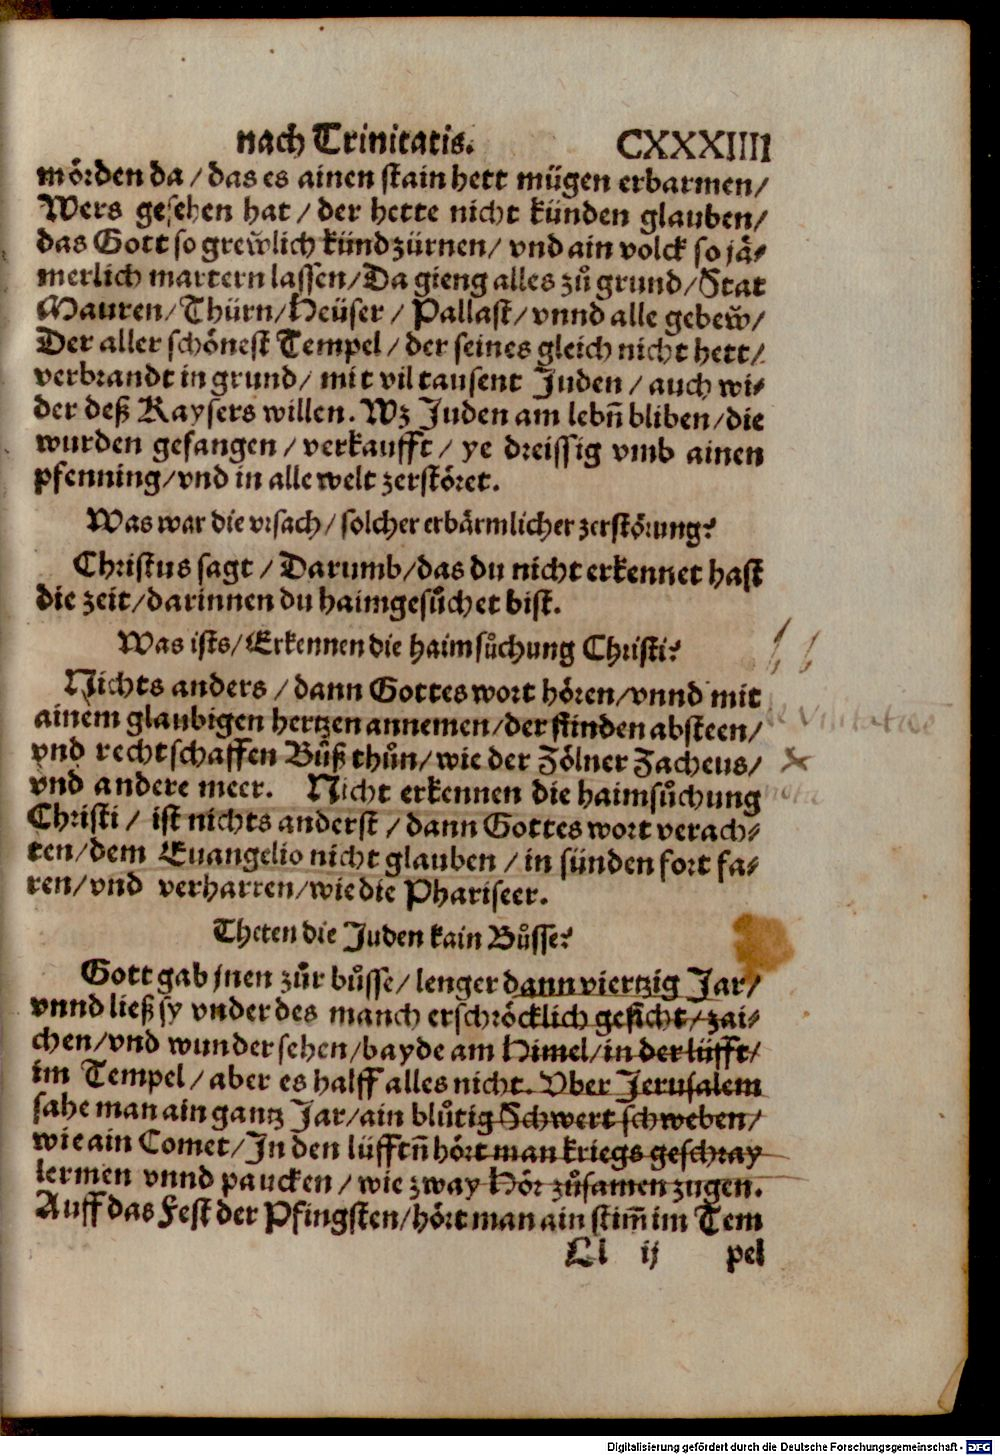 nach Trinitatis. CXXXIIII
mörden da / das es ainen stain hett mügen erbarmen /
Wers gesehen hat / der hette nicht künden glauben /
das Gott so grew̃lich künd zürnen / vnd ain volck so jä-
merlich martern lassen / Da gieng alles zů grund / Stat
Mauren / Thürn / Heüser / Pallast / vnnd alle gebew̃ /
Der aller schönest Tempel / der seines gleich nicht hett /
verbrandt in grund / mit vil tausent Juden / auch wi-
der deß Kaysers willen. Wz Juden am lebñ bliben / die
wurden gefangen / verkaufft / ye dreissig vmb ainen
pfenning / vnd in alle welt zerstöret.
Was war die vrsach / solcher erbärmlicher zerstörung?
Christus sagt / Darumb / das du nicht erkennet hast
die zeit / darinnen du haimgesůchet bist.
Was ists / Erkennen die haimsůchung Christi?
Nichts anders / dann Gottes wort hören / vnnd mit
ainem glaubigen hertzen annemen / der sünden absteen /
vnd rechtschaffen Bůß thůn / wie der Zölner Zacheus /
vnd andere meer. Nicht erkennen die haimsůchung
Christi / ist nichts anderst / dann Gottes wort verach-
ten / dem Euangelio nicht glauben / in sünden fort fa-
ren / vnd verharren / wie die Phariseer.
Theten die Juden kain Bůsse?
Gott gab jnen zůr bůsse / lenger dann viertzig Jar /
vnnd ließ sy vnder des manch erschröcklich gesicht / zai-
chen / vnd wunder sehen / bayde am Himel / in der lüfft /
im Tempel / aber es halff alles nicht. Vber Jerusalem
sahe man ain gantz Jar / ain blůtig Schwert schweben /
wie ain Comet / In den lüfftñ hört man kriegs geschray
lermen vnnd paucken / wie zway Hör zůsamen zugen.
Auff das Fest der Pfingsten / hört man ain stim̃ im Tem
Ll ij pel
Digitalisierung gefördert durch die Deutsche Forschungsgemeinschaft - DFG